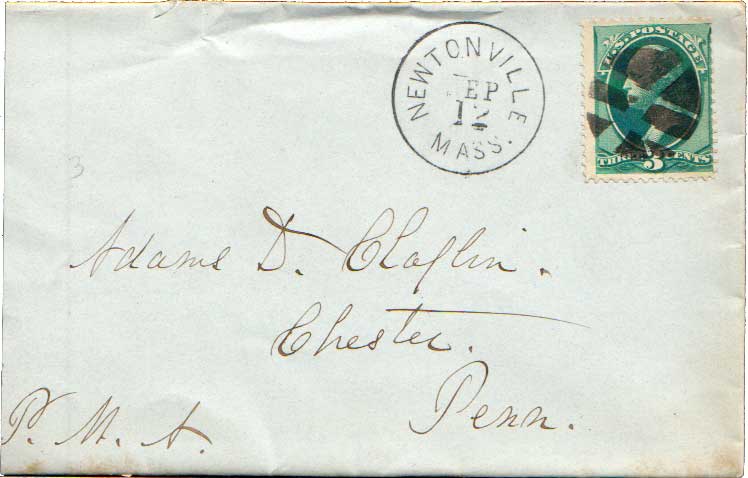 NEWTONVILLE
SEP
12
MASS.
U.S. POSTAGE
THREE 3 CENTS
3
Adams D. Claflin.
Chester.
Penn.
P. M. A.